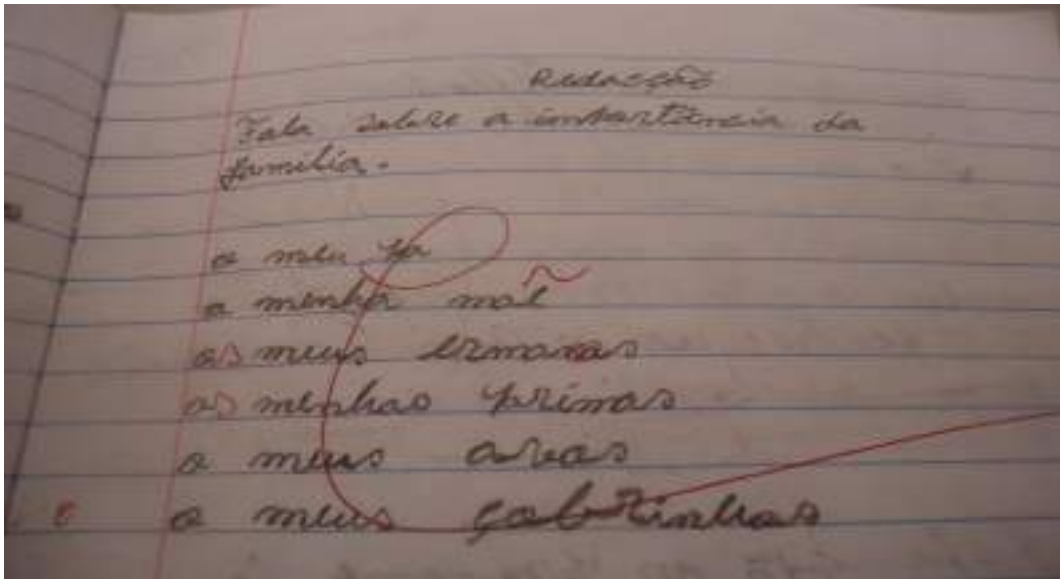 Redacção
Fala sobre a importância da
família.
o meu pa
a minha mãe
os meus ermanas
as minhas primas
o meus avoas
o meus çobrinhas